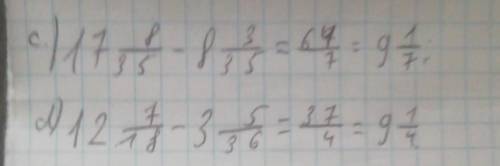 c.) 17 8/35 - 8 3/35 = 64/7 = 9 1/7;
d) 12 7/18 - 3 5/36 = 37/4 = 9 1/4